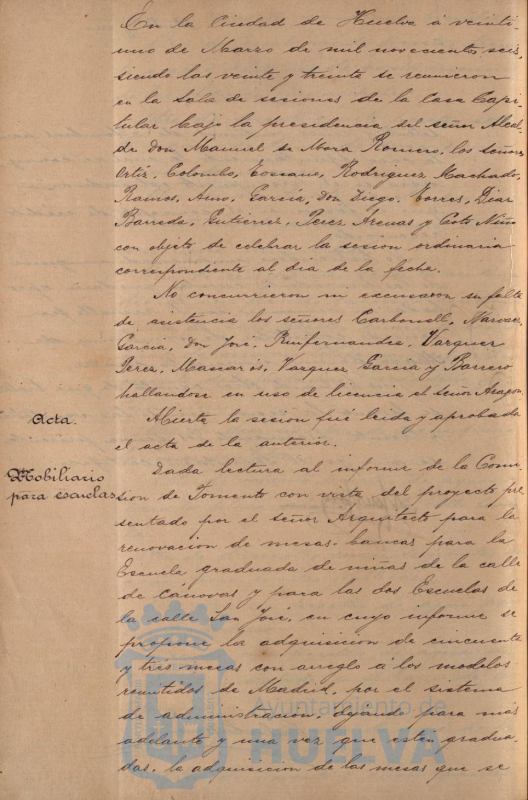 En la Ciudad de Huelva á veinti-
uno de Marzo de mil novecientos seis,
siendo las veinte y treinta se reunieron
en la Sala de sesiones de la Casa Capi-
tular bajo la presidencia del señor Alcal-
de Don Manuel de Mora Romero, los señores
Ortiz, Colombo, Toscano, Rodriguez, Machado,
Ramos, García, Don Diego, Torres, Diaz
Barreda, Gutierrez, Perez, Arenas y Coto Niño
con objeto de celebrar la sesion ordinaria
correspondiente al dia de la fecha.
No concurrieron ni excusaron su falta
de asistencia los señores Carbonell,
García, Don José, Ruifernandez, Vazquez
Perez, Mascarós, Vazquez Garcia y Barrero
hallandose en uso de licencia el señor Aragon.
Acta.
Abierta la sesion fué leida y aprobada
el acta de la anterior.
Mobiliario
para escuelas
Dada lectura al informe de la Comi-
sion de Fomento con vista del proyecto pre
sentado por el señor Arquitecto para la
renovacion de mesas-bancas para la
Escuela graduada de niñas de la calle
de Cánovas y para las dos Escuelas de
la calle San José, en cuyo informe se
propone la adquisicion de cincuenta
y tres mesas con arreglo a los modelos
remitidos de Madrid, por el sistema
de administracion, dejando para más
adelante y una vez que esten gradua-
das, la adquisicion de las mesas que se
Ayuntamiento de
HUELVA